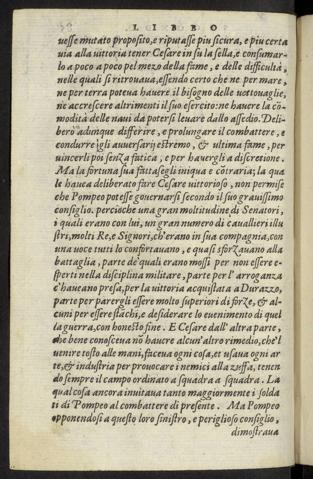 LIBRO
uesse mutato proposito, e riputasse piu sicura, e piu certa
uia alla uittoria tener Cesare in su la sella, e consumar-
lo a poco a poco pel mezo della fame, e delle difficultà,
nelle quali si ritrouaua, essendo certo che ne per mare,
ne per terra poteua hauere il bisogno delle uettouaglie,
ne accrescere altrimenti il suo esercito: ne hauere la cō-
modità delle naui da potersi leuare dallo assedio. Deli-
berò adunque differire, e prolungare il combattere, e
condurre igli auuersarij estremo, & ultima fame, per
uincerli poi senza fatica, e per hauergli a discretione.
Ma la fortuna sua fattasegli iniqua e cōtraria; la qua
le hauea deliberato fare Cesare uittorioso, non permise
che Pompeo potesse gouernarsi secondo il suo grauissimo
consiglio. percioche una gran moltitudine di Senatori,
i quali erano con lui, un gran numero di cauallieri illu
stri, molti Re, e Signori, ch'erano in sua compagnia, con
una uoce tutti lo confortauano, e quasi sforzauano alla
battaglia, parte de quali erano mossi per non essere e-
sperti nella disciplina militare, parte per l'arroganza
c'haueano presa, per la uittoria acquistata a Durazzo,
parte per parergli essere molto superiori di forze, & al-
cuni per essere stāchi, e desiderare lo euenimento di quel
la guerra, con honesto fine. E Cesare dall'altra parte,
che bene conosceua nō hauere alcun'altro rimedio, che'l
uenire tosto alle mani, faceua ogni cosa, et usaua ogni ar
te, & industria per prouocare i nemici alla zuffa, tenen
do sempre il campo ordinato a squadra a squadra. La
qual cosa ancora inuitaua tanto maggiormente i solda
ti di Pompeo al combattere di presente. Ma Pompeo
opponendosi a questo loro sinistro, e periglioso consiglio,
dimostraua